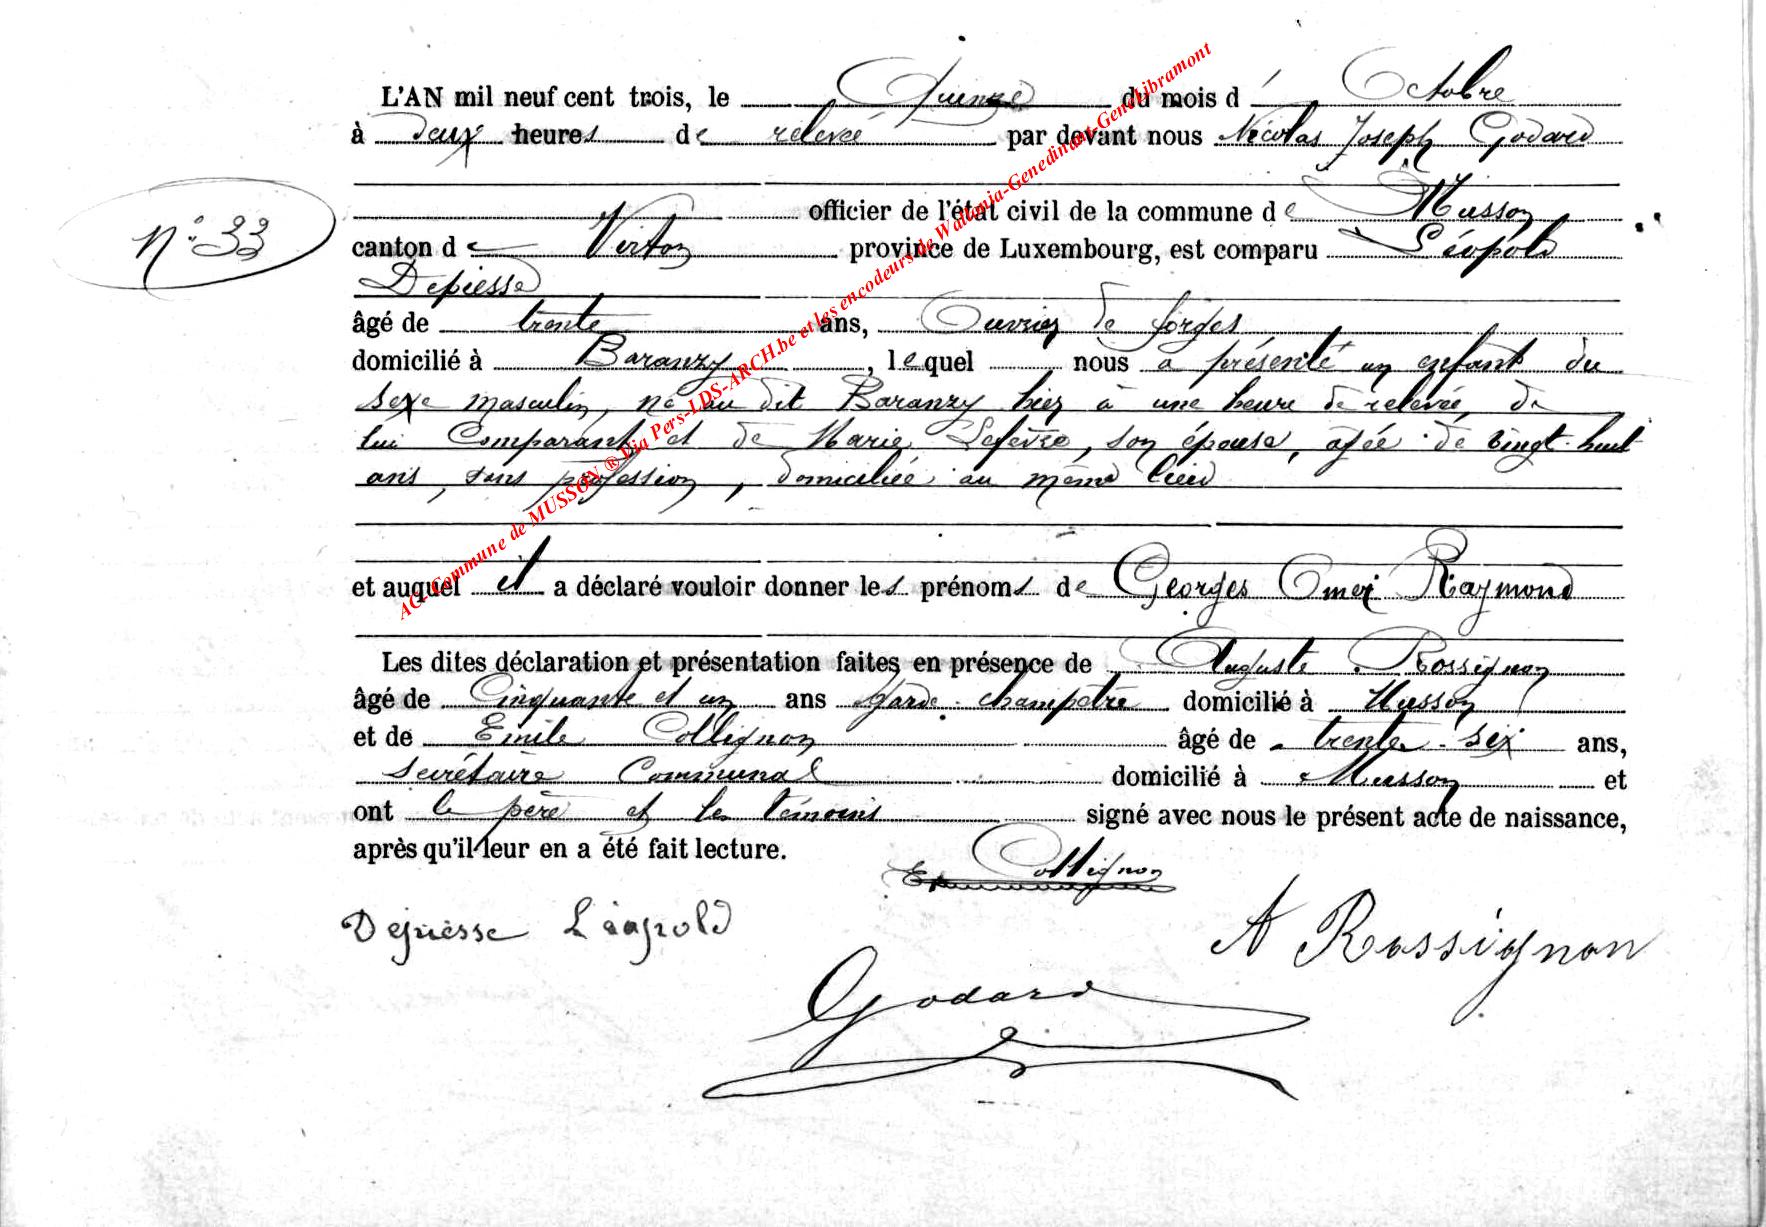 L'AN mil neuf cent trois, le Quinze du mois d'Octobre
à deux heures de relevée par devant nous Nicolas Joseph Godard
officier de l'état civil de la commune de Musson
N° 33
canton de Virton province de Luxembourg, est comparu Léopold
Depiesse
âgé de trente ans, Ouvrier de forges
domicilié à Baranzy, lequel nous a présenté un enfant du
sexe masculin, né au dit Baranzy hier à une heure de relevée, de
lui Comparant et de Marie Lefèvre, son épouse, âgée de vingt-huit
ans, sans profession, domiciliée au même lieu
et auquel il a déclaré vouloir donner les prénoms de Georges Omer Raymond
Les dites déclaration et présentation faites en présence de Auguste Rossignon
âgé de Cinquante et un ans garde-champêtre domicilié à Musson
et de Emile Collignon âgé de trente-six ans,
Secrétaire Communal domicilié à Musson et
ont le père et les témoins signé avec nous le présent acte de naissance,
après qu'il leur en a été fait lecture.
E. Collignon
Depiesse Léopold
A Rossignon
Godard
AC-Commune de MUSSON ® Via Pers-LDS-ARCH.be et les encodeurs de Wallonia-Genedinant-Genelibramont